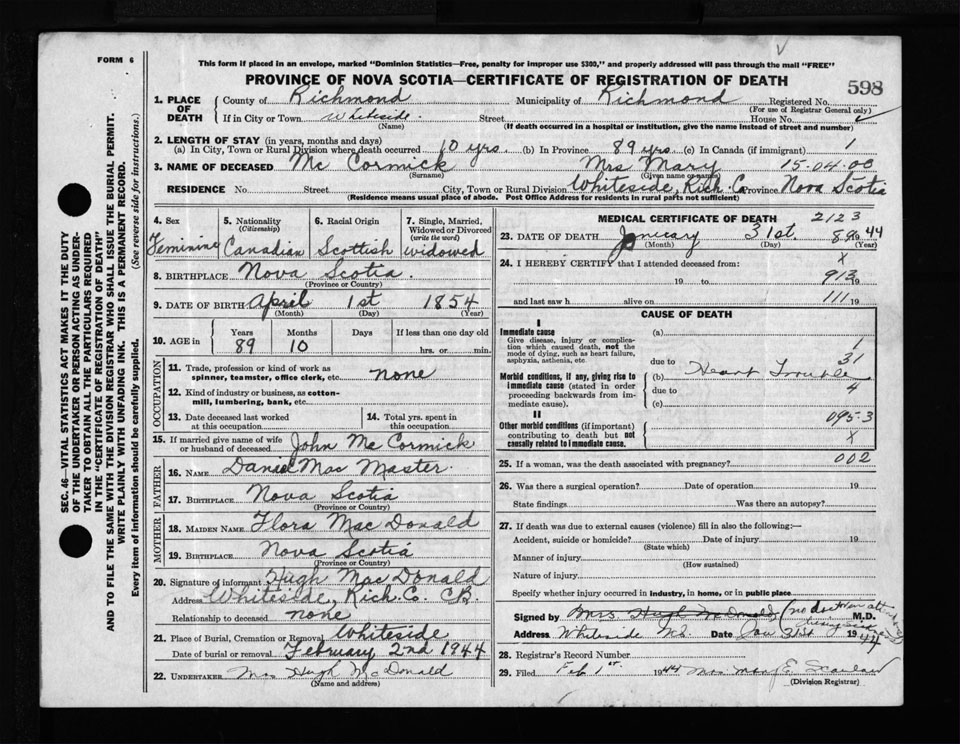 FORM 6
This form if placed in an envelope, marked "Dominion Statistics—Free, penalty for improper use $300," and properly addressed will pass through the mail "FREE"
PROVINCE OF NOVA SCOTIA—CERTIFICATE OF REGISTRATION OF DEATH
598
1. PLACE OF DEATH County of Richmond Municipality of Richmond Registered No.
(For use of Registrar General only)
If in City or Town Whiteside Street House No.
(Name) (If death occurred in a hospital or institution, give the name instead of street and number)
2. LENGTH OF STAY (in years, months and days)
(a) In City, Town or Rural Division where death occurred 10 yrs. (b) In Province 89 yrs (c) In Canada (if immigrant) 1
3. NAME OF DECEASED Mc Cormick Mrs Mary 15-04-00
(Surname) (Given name or names)
RESIDENCE No. Street City, Town or Rural Division Whiteside, Rich. Co Province Nova Scotia
(Residence means usual place of abode. Post Office Address for residents in rural parts not sufficient)
4. Sex
Feminine
5. Nationality
(Citizenship)
Canadian
6. Racial Origin
Scottish
7. Single, Married, Widowed or Divorced
(write the word)
widowed
8. BIRTHPLACE Nova Scotia.
(Province or Country)
9. DATE OF BIRTH April 1st 1854
(Month) (Day) (Year)
10. AGE in Years Months Days If less than one day old
89 10 hrs. or min.
OCCUPATION
11. Trade, profession or kind of work as spinner, teamster, office clerk, etc. none
12. Kind of industry or business, as cotton-mill, lumbering, bank, etc.
13. Date deceased last worked at this occupation
14. Total yrs. spent in this occupation
15. If married give name of wife or husband of deceased John Mc Cormick
FATHER
16. NAME Daniel Mac Master.
17. BIRTHPLACE Nova Scotia
(Province or Country)
MOTHER
18. MAIDEN NAME Flora Mac Donald
19. BIRTHPLACE Nova Scotia
(Province or Country)
20. Signature of informant Hugh Mac Donald
Address Whiteside, Rich. Co. C.B.
Relationship to deceased none
21. Place of Burial, Cremation or Removal Whiteside
Date of burial or removal February 2nd 1944
22. UNDERTAKER Mrs Hugh McDonald
(Name and address)
MEDICAL CERTIFICATE OF DEATH
2123
23. DATE OF DEATH 31st. 89 1944
(Month) (Day) (Year)
24. I HEREBY CERTIFY that I attended deceased from: X
19 to 913 19
and last saw h alive on 111 19
CAUSE OF DEATH
I
Immediate cause
Give disease, injury or complication which caused death, not the mode of dying, such as heart failure, asphyxia, asthenia, etc.
(a) 1
due to 31
Morbid conditions, if any, giving rise to immediate cause (stated in order proceeding backwards from immediate cause).
(b) Heart Trouble
due to 4
(c)
II
Other morbid conditions (if important) contributing to death but not causally related to immediate cause.
095-3
X
25. If a woman, was the death associated with pregnancy? 002
26. Was there a surgical operation? Date of operation 19
State findings Was there an autopsy?
27. If death was due to external causes (violence) fill in also the following:—
Accident, suicide or homicide? Date of injury 19
(State which)
Manner of injury
(How sustained)
Nature of injury
Specify whether injury occurred in industry, in home, or in public place
Signed by Mrs Hugh McDonald (no doctor in M.D.
Address Whiteside Date Jan 31st 1944
28. Registrar's Record Number
29. Filed Feb 1st 1944 Mrs Mary E.
(Division Registrar)
SEC. 46—VITAL STATISTICS ACT MAKES IT THE DUTY
OF THE UNDERTAKER OR PERSON ACTING AS UNDER-
TAKER TO OBTAIN ALL THE PARTICULARS REQUIRED
IN THE "CERTIFICATE OF REGISTRATION OF DEATH"
AND TO FILE THE SAME WITH THE DIVISION REGISTRAR WHO SHALL ISSUE THE BURIAL PERMIT.
WRITE PLAINLY WITH UNFADING INK. THIS IS A PERMANENT RECORD.
Every item of information should be carefully supplied. (See reverse side for instructions.)